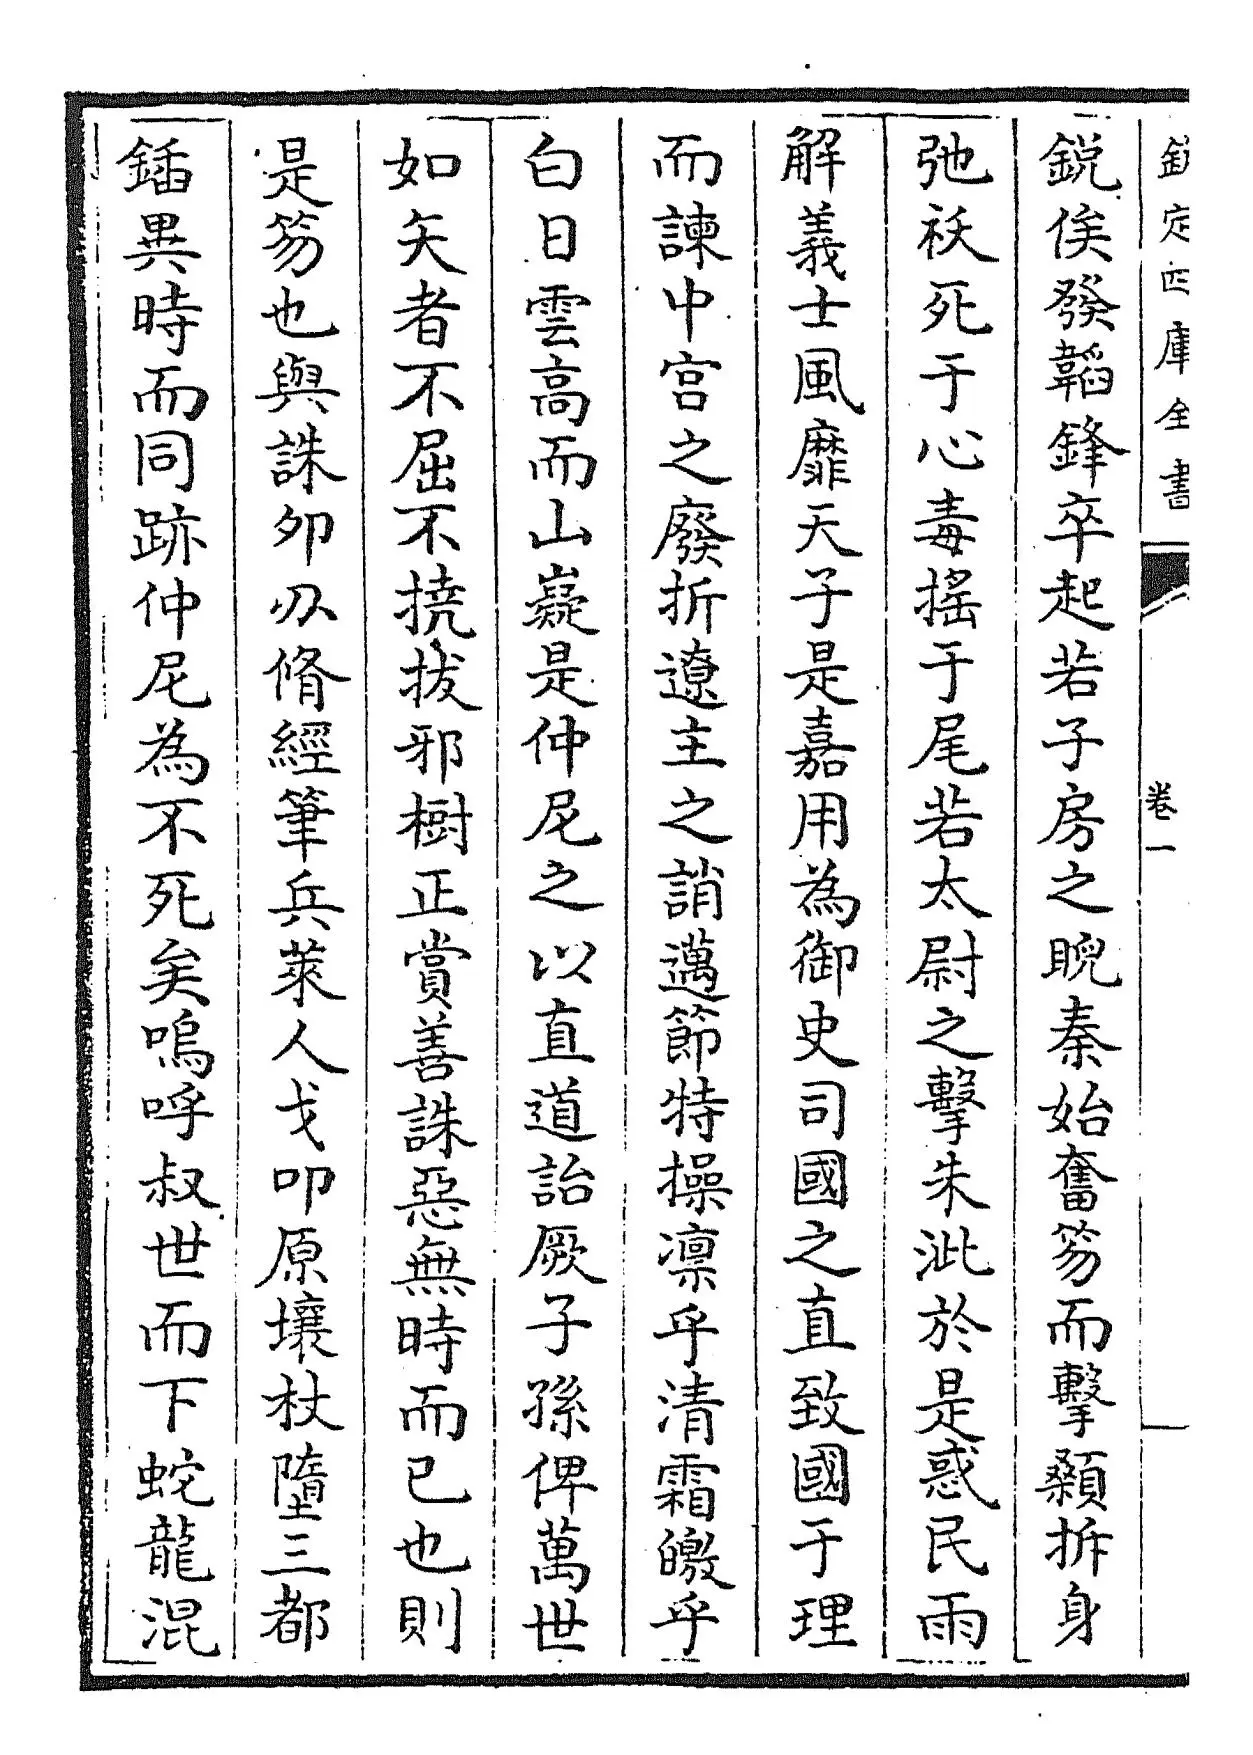 欽定四庫全書
卷一
鋭俟發韜鋒卒起若子房之睨秦始奮笏而擊顙拆身
弛袄死于心毒搖于尾若太尉之擊朱泚於是惑民雨
解義士風靡天子是嘉用為御史司國之直致國于理
而諫中宫之廢折遼主之誚邁節特操凛乎清霜皦乎
白日雲高而山嶷是仲尼之以直道詒厥子孫俾萬世
如矢者不屈不撓拔邪樹正賞善誅惡無時而已也則
是笏也與誅夘刅脩經筆兵萊人戈叩原壤杖墮三都
鍤異時而同跡仲尼為不死矣嗚呼叔世而下蛇龍混